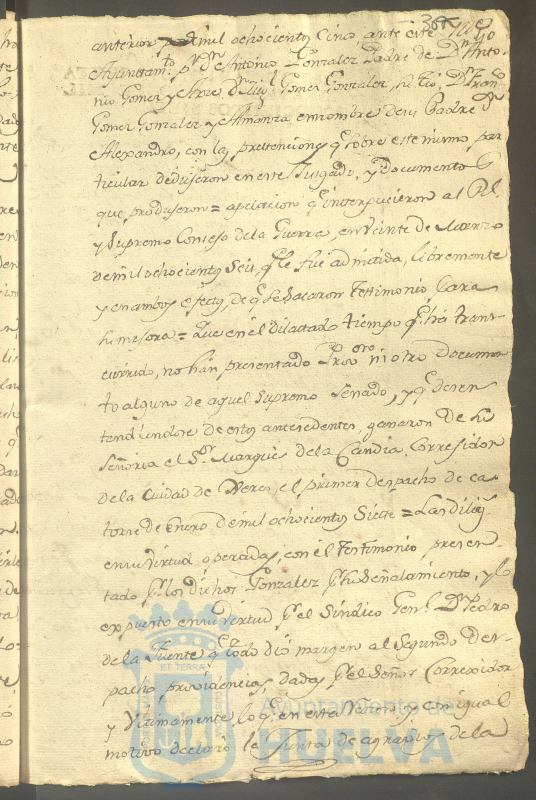 36
anterior mil ochocientos cinco ante este
Ayuntam.to p.r D.n Antonio Gonzalez Padre de D.n Anto-
nio Gomez y Arze D.n Mig.l Gomez Gonzalez, su tio, D.n Fran.co
Gomez Gonzalez y Almanza en nombre de su Padre D.n
Alexandro, con las pretenciones q.e sobre este mismo par
ticular dedujeron en este Juzgado, y Documentos
que produjeron = apelacion q.e interpusieron al R.l
y Supremo Consejo de la Guerra, en veinte de Marzo
de mil ochocientos seis, q.e le fué admitida, libremente
y en ambos efectos, de q.e se sacaron Testimonio para
su mejora = Que en el dilactado tiempo q.e há trans-
currido, no han presentado ni otro documen
to alguno de aquel Supremo Senado, y q.e desen
tendiendose de estos antecedentes, ganaron de Su
Señoria el S.or Marques de la Candia, Corregidor
de la Ciudad de Xerez el primer despacho de ca
torze de Enero de mil ochocientos Siette = Las dilig.s
en su virtud operadas, con el Testimonio presen
tado p.r los dichos Gonzalez p.r su Señalamiento, y lo
expuesto en su virtud p.r el Sindico Gen.l D.n Pedro
de la Fuente q.e todo dió margen al Segundo des-
pacho, providencias, dadas p.r el Señor Correxidor
y Ultimamente lo q.e en esta con igual
motivo declaró la Junta de agravios de la
ET TERRA
Ayuntamiento de
HUELVA